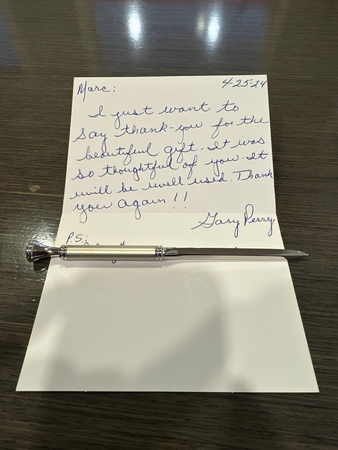 Marc: 4-25-24
I just want to
say thank-you for the
beautiful gift. It was
so thoughtful of you. It
will be well used. Thank
you again!!
Gary Perry
P.S.: